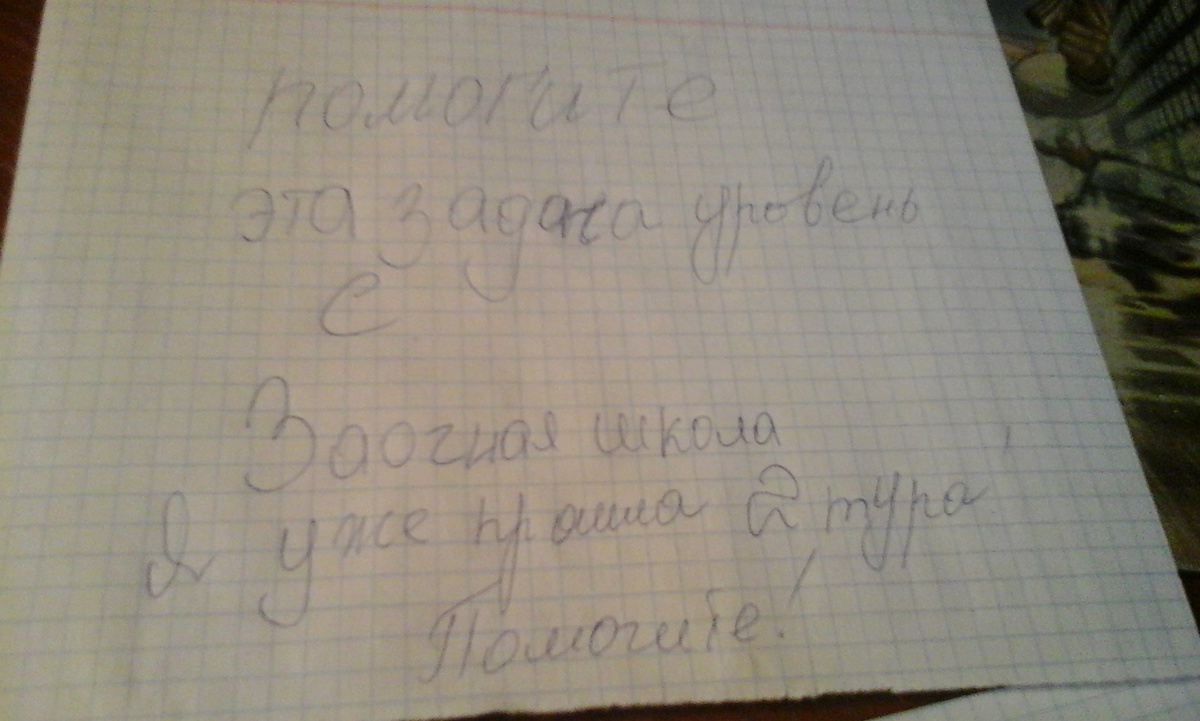 помогите
эта задача уровень
С
Заочная школа
Я уже прошла 2 тура
Помогите!